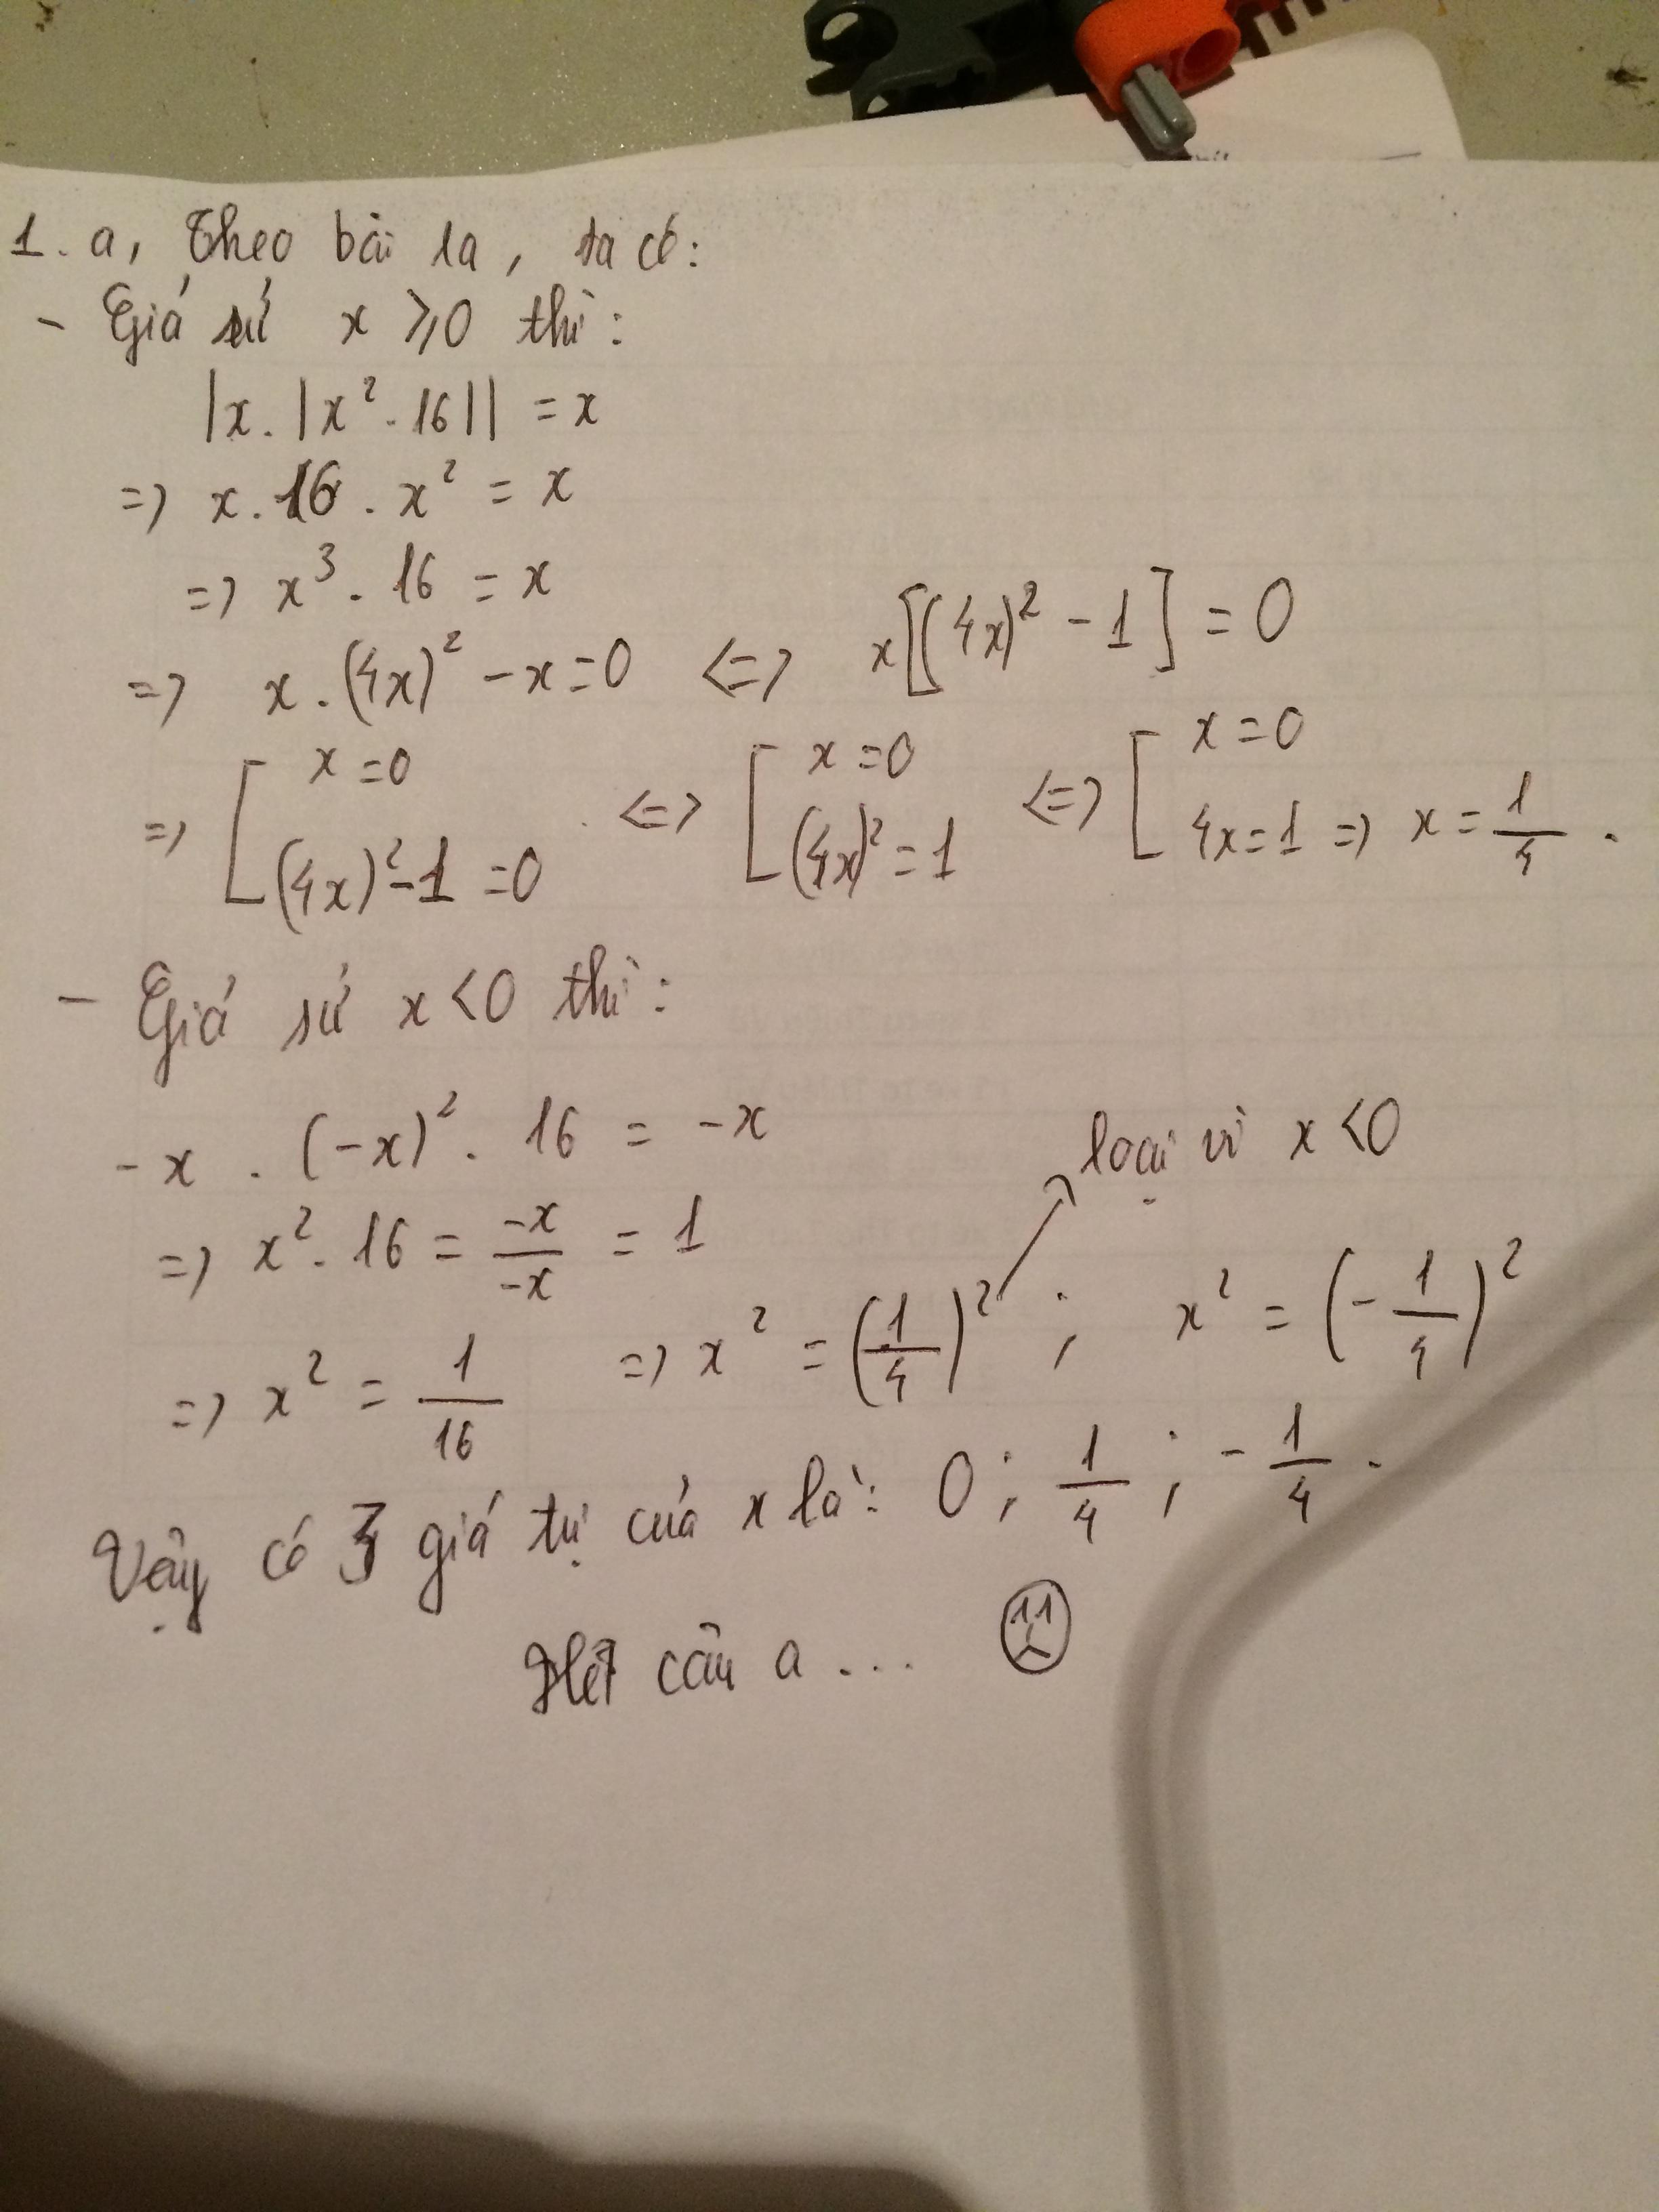 1. a, Theo bài ra, ta có:
- Giả sử x ⩾ 0 thì:
|x.|x². 16|| = x
=> x. 16 . x² = x
=> x³. 16 = x
=> x . (4x)² - x = 0 <=> x[(4x)² - 1] = 0
=> [ x = 0 ; (4x)² - 1 = 0 <=> [ x = 0 ; (4x)² = 1 <=> [ x = 0 ; 4x = 1 => x = 1/4 .
- Giả sử x < 0 thì:
- x . (-x)² . 16 = -x
loại vì x < 0
=> x² . 16 = -x/-x = 1
=> x² = 1/16 => x² = (1/4)² ; x² = (-1/4)²
Vậy có 3 giá trị của x là: 0 ; 1/4 ; -1/4 .
Hết câu a ...